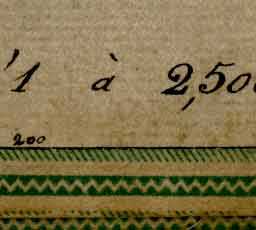 '1 à 2,500
200